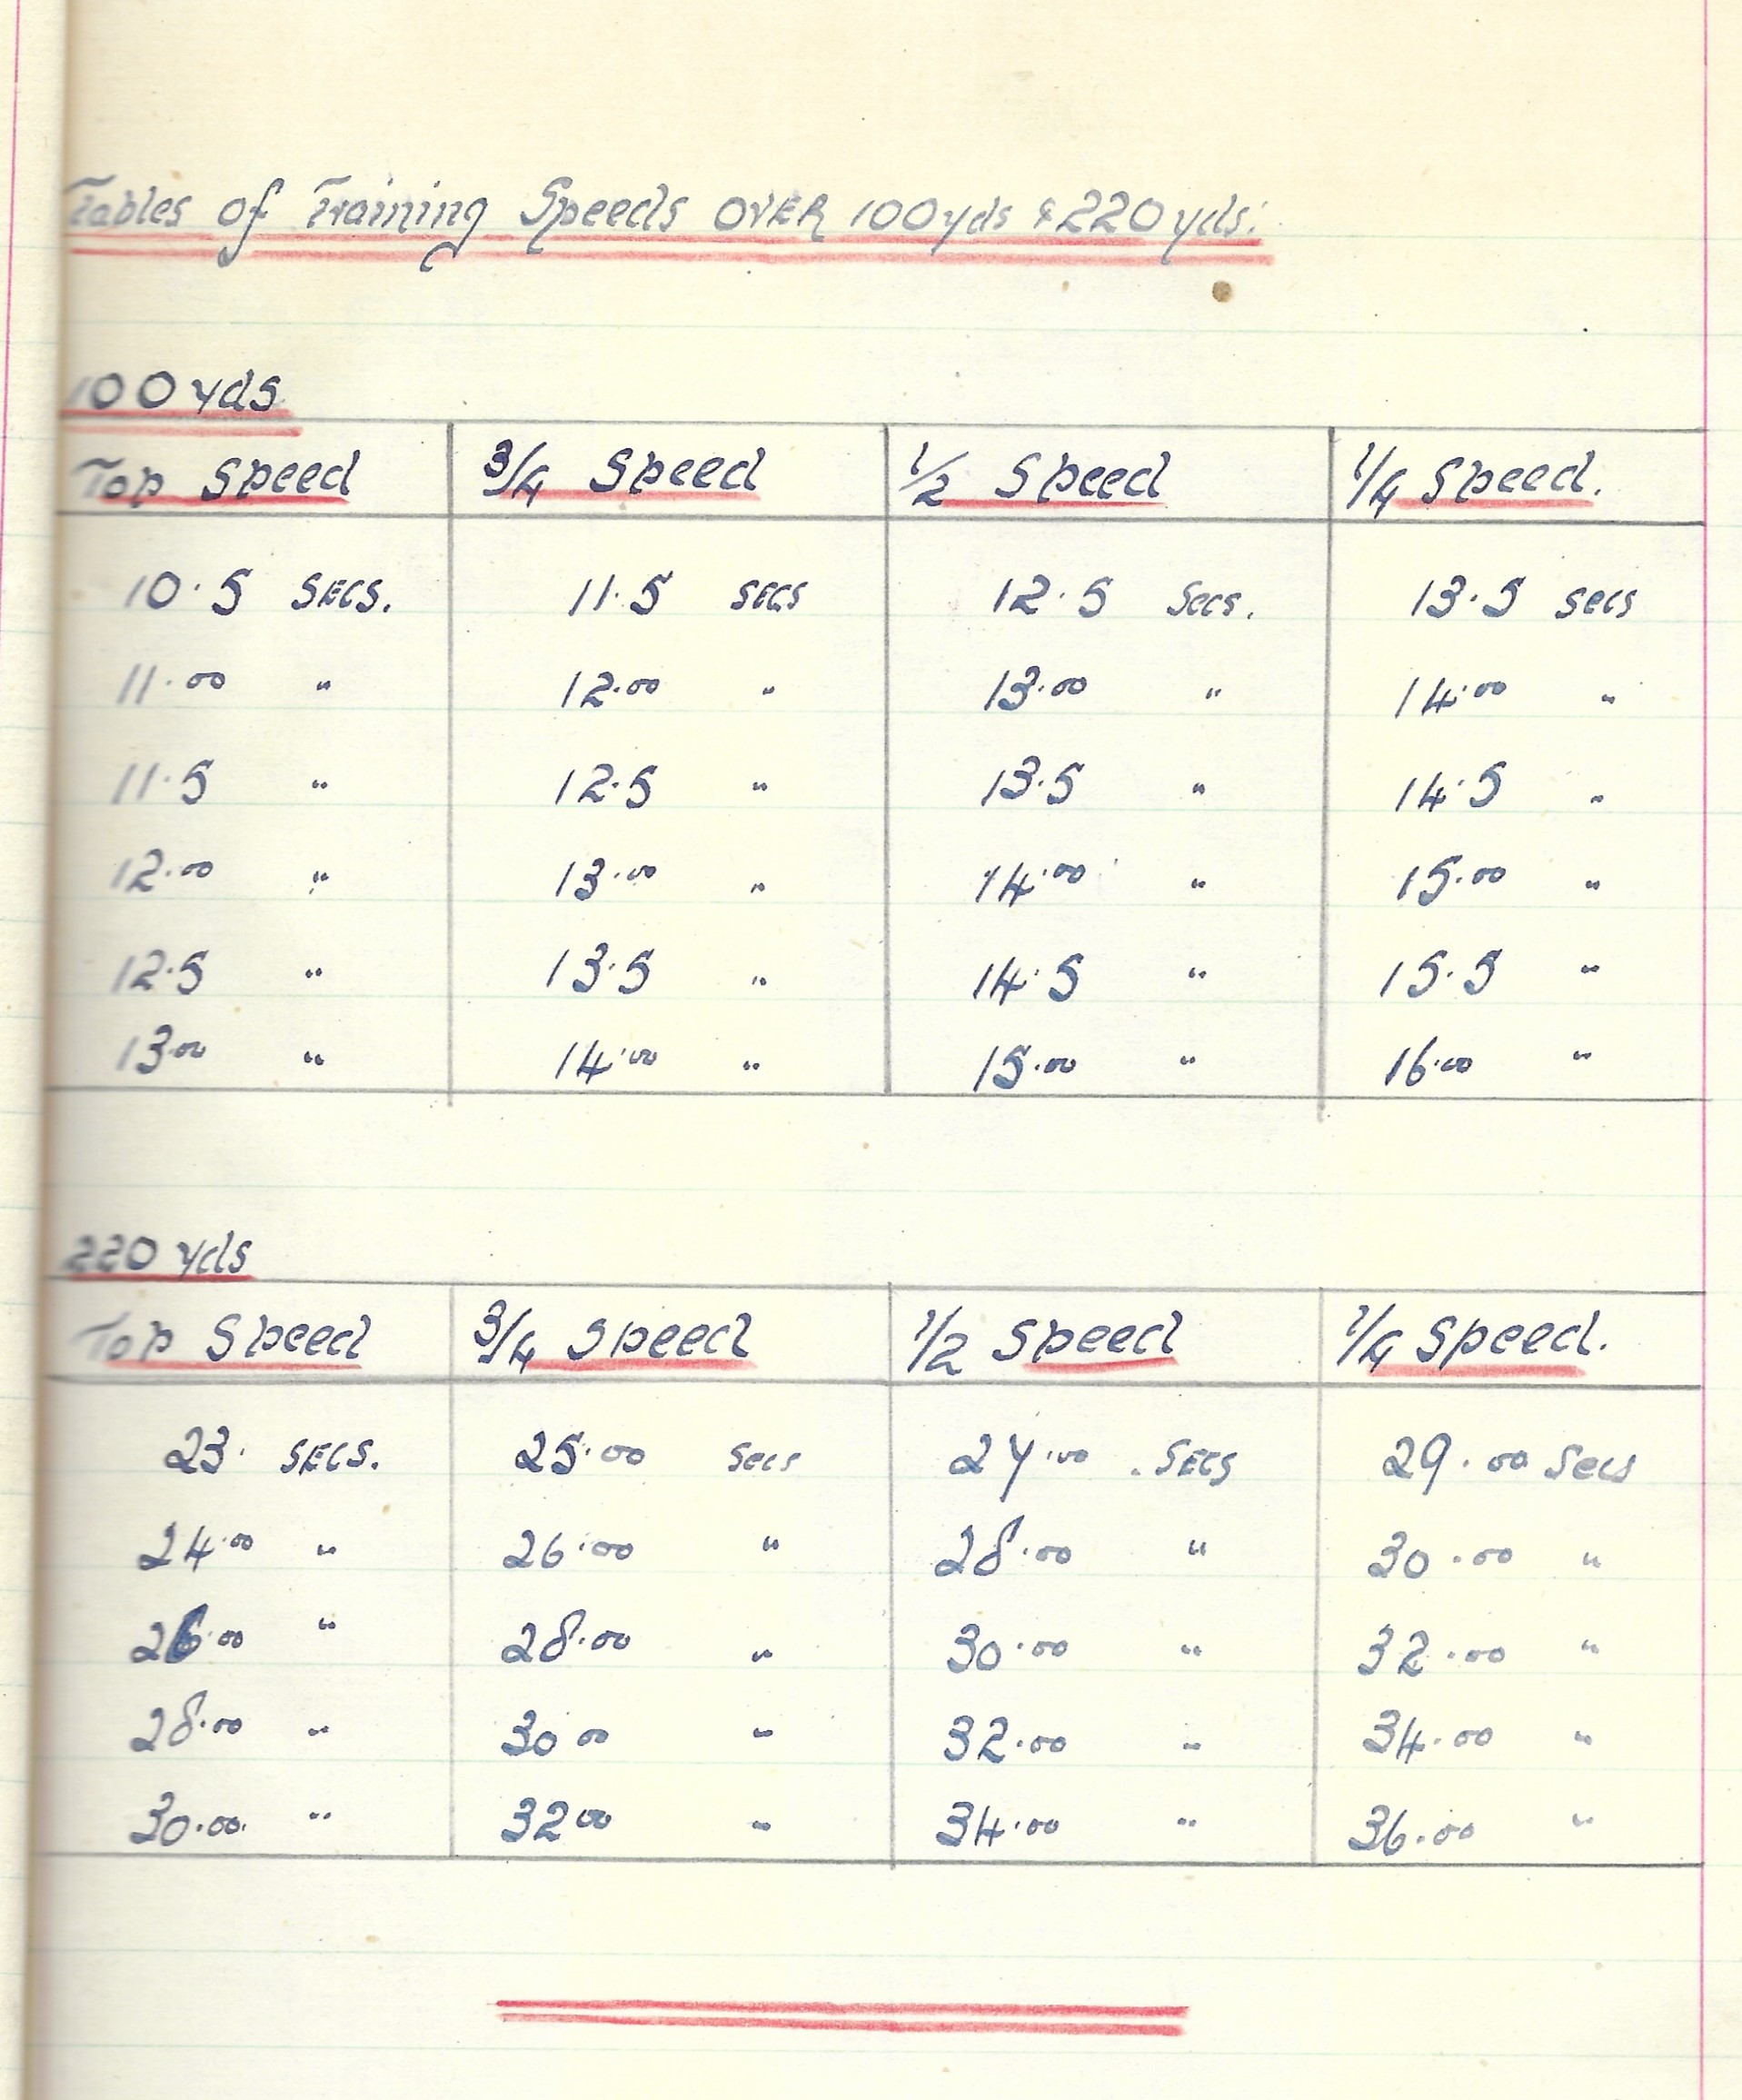 Tables of Training Speeds OVER 100yds & 220yds.
100 yds
Top Speed 3/4 Speed 1/2 Speed 1/4 Speed.
10.5 SECS. 11.5 SECS 12.5 Secs. 13.5 secs
11.00 " 12.00 " 13.00 " 14.00 "
11.5 " 12.5 " 13.5 " 14.5 "
12.00 " 13.00 " 14.00 " 15.00 "
12.5 " 13.5 " 14.5 " 15.5 "
13.00 " 14.00 " 15.00 " 16.00 "
220 yds
Top Speed 3/4 Speed 1/2 Speed 1/4 Speed.
23. SECS. 25.00 Secs 27.00 . SECS 29.00 Secs
24.00 " 26.00 " 28.00 " 30.00 "
26.00 " 28.00 " 30.00 " 32.00 "
28.00 " 30 00 " 32.00 " 34.00 "
30.00. " 32 00 " 34.00 " 36.00 "